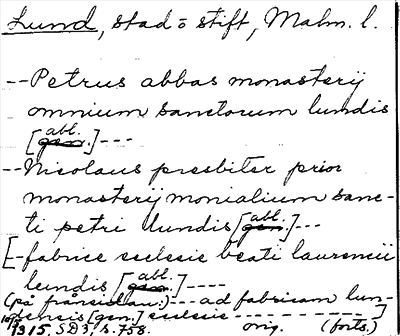 Lund, stad o stift, Malm. l.
--Petrus abbas monasterij
omnium sanctorum lundis
[gen. abl.]---
--Nicolaus presbiter prior
monasterij monialium sanc-
ti petri lundis [gen. abl.]---
[-fabrice ecclesie beati laurencii
lundis [gen. abl.]----
(på frånsidan:)--- ad fabricam lun-
densis [gen.] ecclesie - - - - - - - - - - ]
1315. SD3, s. 758. orig. (forts.)